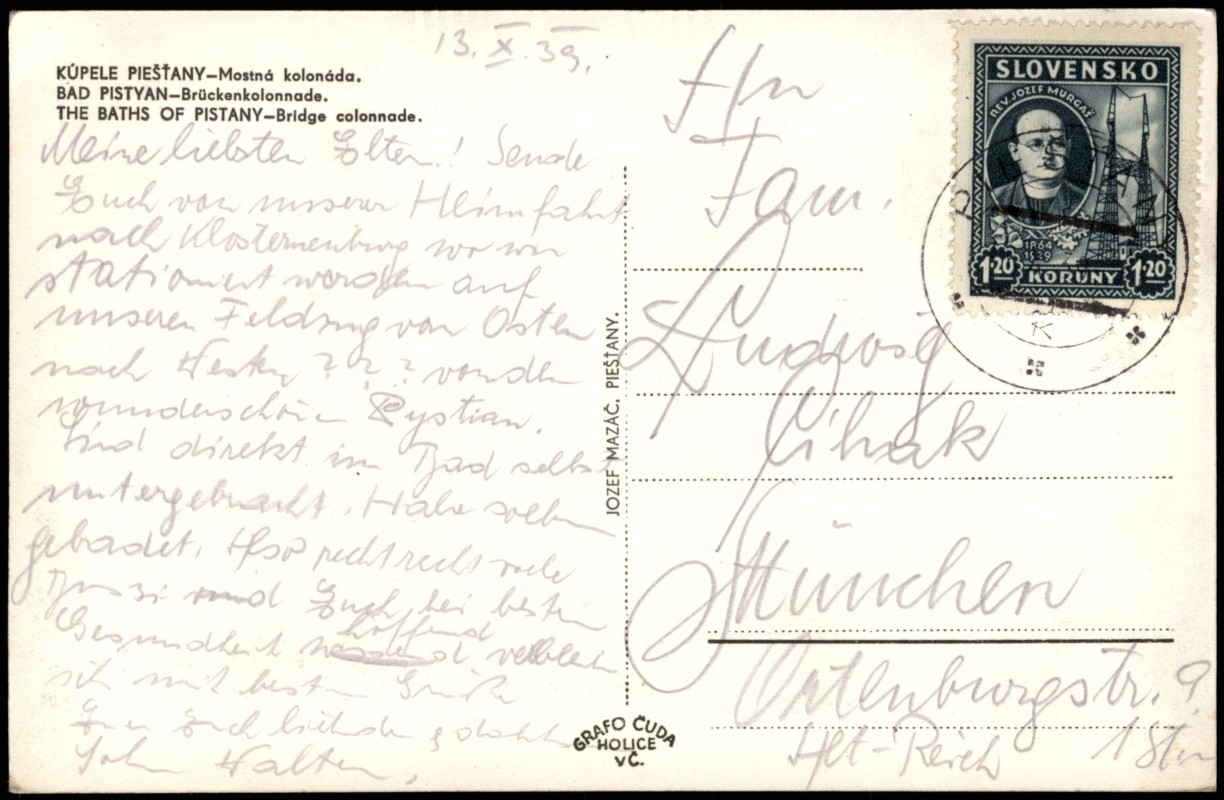 13. X. 39.
KÚPELE PIEŠŤANY—Mostná kolonáda.
BAD PISTYAN—Brückenkolonnade.
THE BATHS OF PISTANY—Bridge colonnade.
Meine liebsten Eltern! Sende
Euch von unserer Heimfahrt
nach Klosterneuburg wo wir
stationiert werden auf
unseren Feldzug von Osten
nach Westen ? ? ? von den
wunderschönen Pystian.
Sind direkt im Bad selbst
untergebracht. Habe soeben
gebadet. Also recht recht viele
Bussi und Euch bei bester
Gesundheit hoffend
sich mit besten Grüße
Euer Euch liebender
Sohn Walter.
JOZEF MAZÁČ, PIEŠŤANY.
GRAFO ČUDA
HOLICE
VČ.
SLOVENSKO
REV. JOZEF MURGAŠ
1864
1929
1·20 KORUNY 1·20
K
Hrn
Fam.
Ludwig
Cihak
München
Ortenburgstr. 9
Alt-Reich